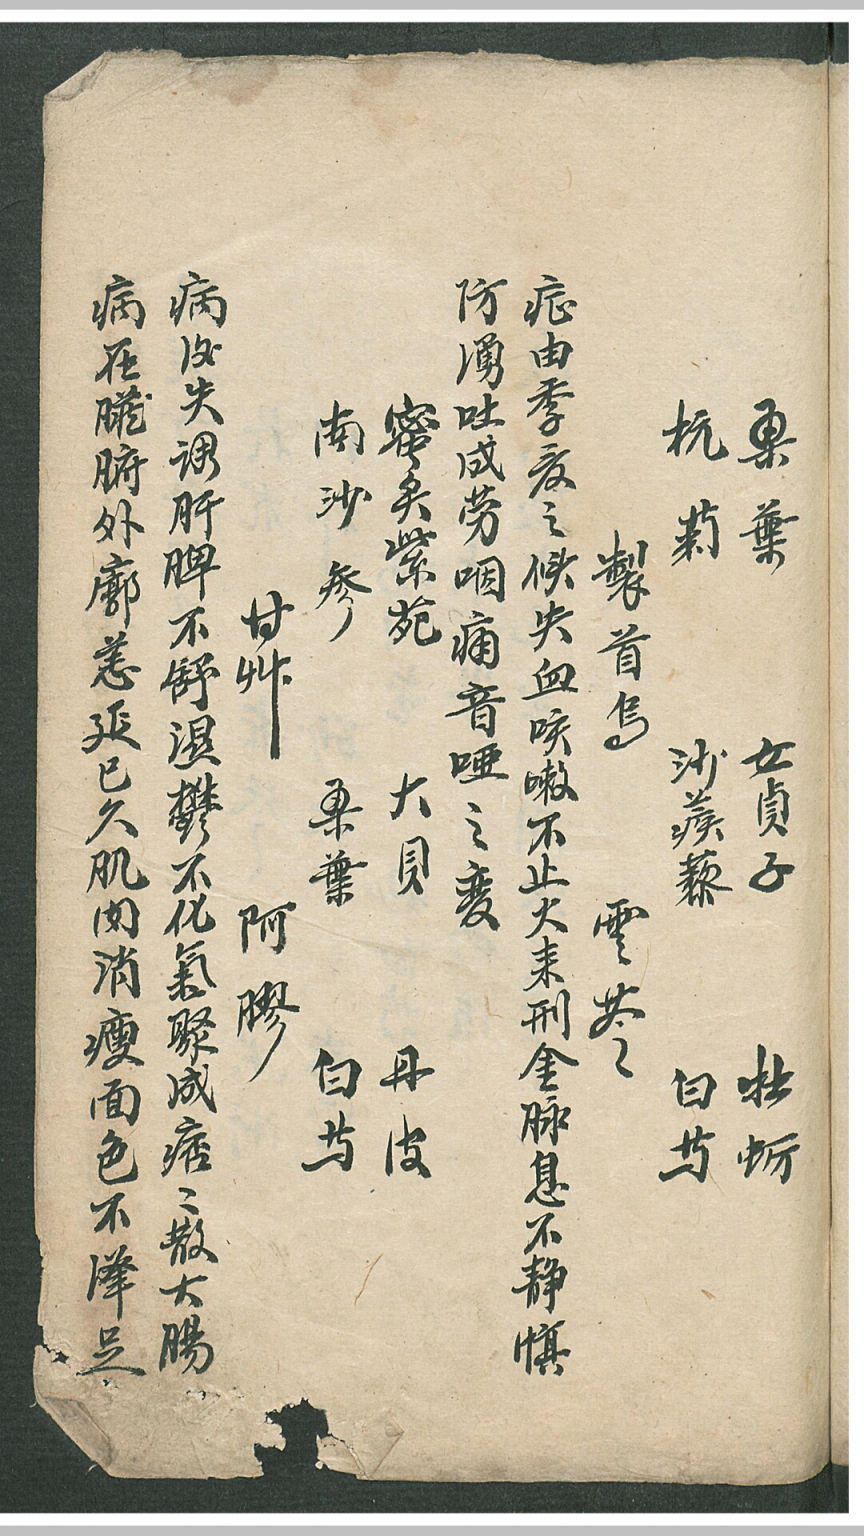 桑葉 女貞子 牡蛎
杭菊 沙蒺藜 白芍
製首烏 雲苓〻
症由季夏之候失血咳嗽不止火来刑金脉息不静慎
防湧吐成劳咽痛音啞之变
蜜炙紫苑 大貝 丹皮
南沙参 桑葉 白芍
甘艸 阿膠
病後失调肝脾不舒濕鬱不化氣聚成痞〻散大腸
病在臟腑外廓恙延已久肌肉消瘦面色不澤足